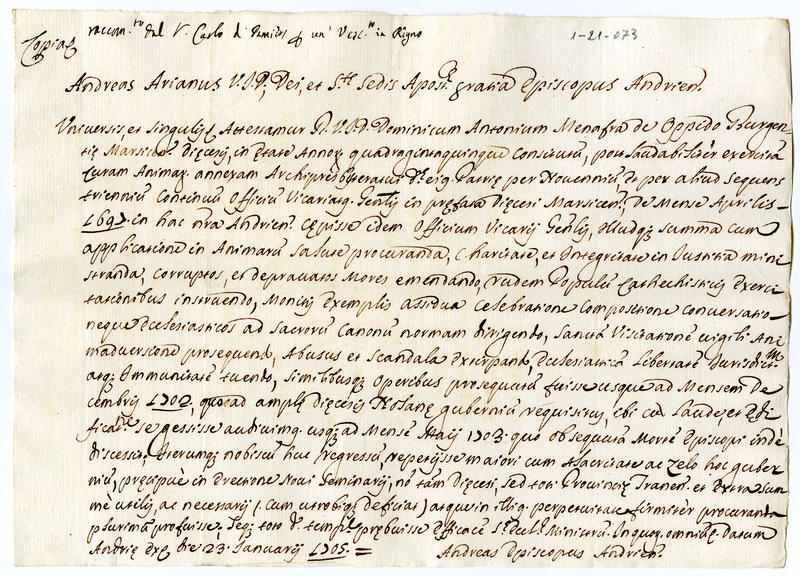 raccom.to dal V. Carlo d. un' Vesc.to in Regno
1-21-073
Copia
Andreas Arianus V.J.D. Dei, et S.te Sedis Apost. gratia Episcopus Andrien.
Universis, et singulis Attestamur D. V.J.D. Dominicum Antonium Menafra de Oppido Burgen-
tie Marsicen. Diecesis, in etate Annor. quadragintaquinque Constitutu, post laudabiliter exercita
Curam Animar. annexam Archipresbyteratui d. eius Patrie per Novennium et per aliud sequens
triennium Continuu Officiu Vicariatus Gen.lis in prefata Diecesi Marsicen. De Mense Aprilis
1697. in hac nra Andrien. Cepisse idem Officium Vicarij Gen.lis, Illudq. summa cum
applicatione in Animaru salute procuranda, Charitate, et Integritate in Iustitia mini
stranda, Corruptos, et depravatos Mores emendando, rudem Populu Cathechisticis Exerci
tationibus instruendo, Monitis Exemplis assidua Celebratione Compositione Conversatio-
neque Ecclesiasticos ad Sacroru Canonu normam dirigendo, Sancta Visitatione vigili Ani
madversione prosequend. Abusus et Scandala extirpand. Ecclesiastica Libertate Iurisdict.m
atq. Immunitate tuendo, similibusq. operibus prosequutu fuisse usque ad Mensem De
cembris 1702, quo ad ample Diecesis Nolane guberniu requisitus, ibi cu Laude, et Edi
ficat.ne se gessisse audivimq. usq. ad Mense Maij 1703. quo ob sequuta Morte Episcopi inde
discessit, Iterumq. nobiscu huc regressu, repetijsse maiori cum Alacritate ac zelo hoc guber
niu, precipue in Directione Novi Seminarij, no ta Diecesi, sed toti Provincie Tranen. et Extra sum
me utilis, ac necessarij (cum utrobiq. deficiat) atque in illius perpetuitate firmiter procuranda
plurimu profuisse, seq. toto d. tempe. prebuisse Efficace S. Eccl. Ministru. In quor. omniu Datum
Andrie Die 23. Ianuarij 1705. =
Andreas Episcopus Andrien.